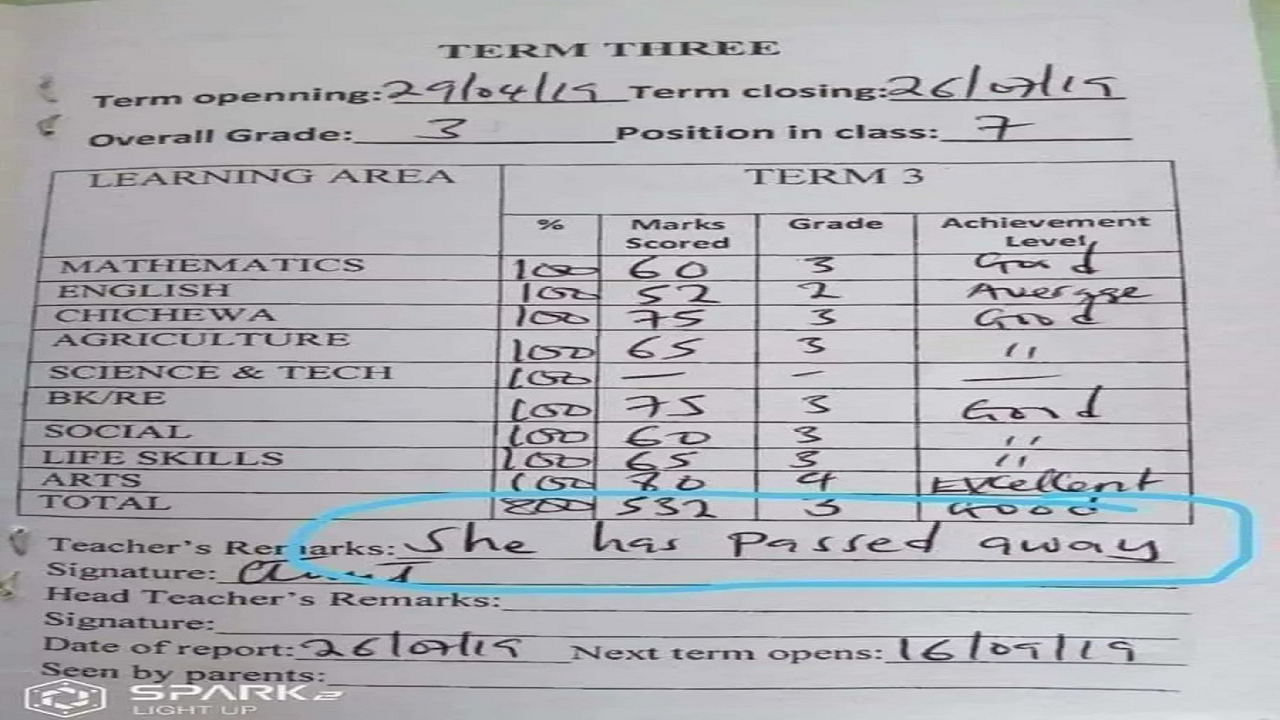 TERM THREE
Term openning: 29/04/19 Term closing: 26/07/19
Overall Grade: 3 Position in class: 7
LEARNING AREA TERM 3
% Marks Scored Grade Achievement Level
MATHEMATICS 100 60 3 Good
ENGLISH 100 52 2 Average
CHICHEWA 100 75 3 Good
AGRICULTURE 100 65 3 "
SCIENCE & TECH 100 — – —
BK/RE 100 75 3 Good
SOCIAL 100 60 3 "
LIFE SKILLS 100 65 3 "
ARTS 100 80 4 Excellent
TOTAL 800 532 3 Good
Teacher's Remarks: She has passed away
Signature:
Head Teacher's Remarks:
Signature:
Date of report: 26/07/19 Next term opens: 16/09/19
Seen by parents:
SPARK 2
LIGHT UP